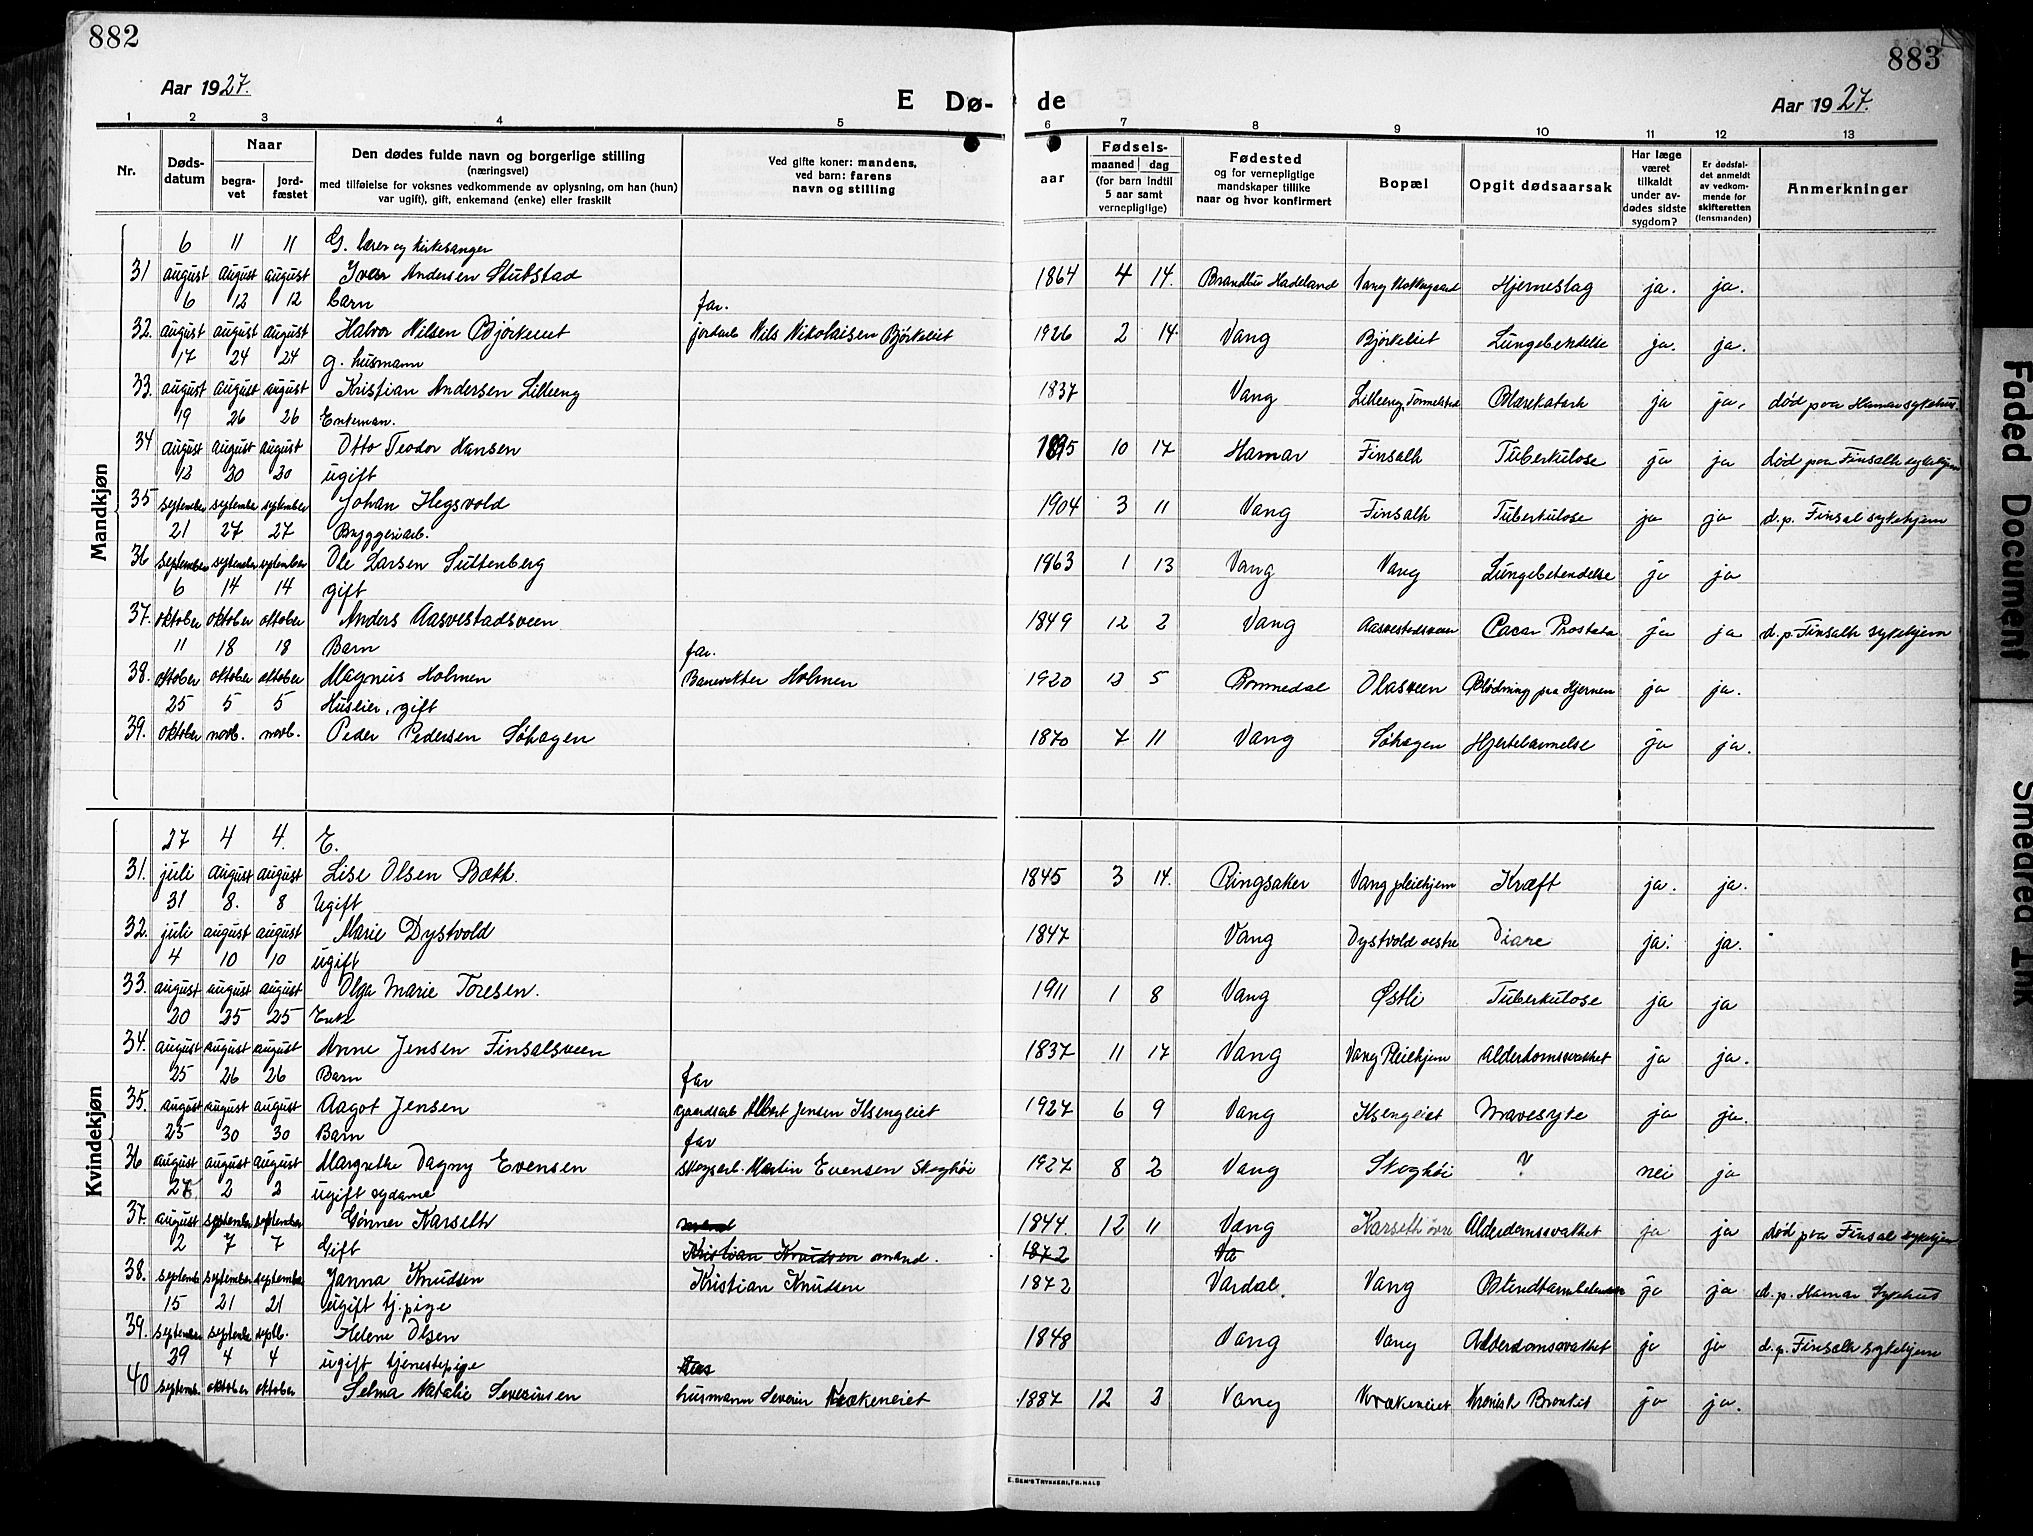 882
883
Aar 1927.
E Dø-
de
Aar 1927.
1 2 3 4 5 6 7 8 9 10 11 12 13
Nr.
Døds-
datum
Naar
begra-
vet
jord-
fæstet
Den dødes fulde navn og borgerlige stilling
(næringsvei)
med tilføielse for voksnes vedkommende av oplysning, om han (hun)
var ugift), gift, enkemand (enke) eller fraskilt
Ved gifte koner: mandens,
ved barn: farens
navn og stilling
aar
Fødsels-
maaned dag
(for barn indtil
5 aar samt
vernepligtige)
Fødested
og for vernepligtige
mandskaper tillike
naar og hvor konfirmert
Bopæl
Opgit dødsaarsak
Har læge
været
tilkaldt
under av-
dødes sidste
sygdom?
Er dødsfal-
det anmeldt
av vedkom-
mende for
skifteretten
(lensmanden)
Anmerkninger
Mandkjøn
6 11 11 G. lærer og kirkesanger
31 august august august Iver Andersen Stubstad 1864 4 14. Brandbu Hadeland Vang Hjerneslag ja. ja.
6 12 12 barn far.
32. august august august Halvor Nilsen Bjørkeeiet jordarb Nils Nikolaisen Bjørkeiet 1926 2 14. Vang Bjørkeiet Lungebetendelse ja. ja.
17 24 24 g. husmann
33. august august august Kristian Andersen Lilleeng 1837 Vang Lilleeng, Tommelstad Blærekatarh ja ja. død paa Hamar sykehus
19 26 26 Enkeman.
34 august august august Otto Teodor Hansen 1895 10 17 Hamar Finsalh Tuberkulose ja ja død paa Finsalh sykehjem
12 20 20 ugift
35 september september september Johan Hegsvold 1904 3 11 Vang Finsalh Tuberkulose ja ja d.p. Finsal sykehjem
21 27 27 Bryggeriarb.
36 september september september Ole Larsen Suttenberg 1963 1 13 Vang Vang Lungebetendelse ja ja
6 14 14 gift
37. oktober oktober oktober Anders Aasvestadsveen 1849 12 2 Vang Aasvestadsveen Cacar Prostata ja ja d.p. Finsalh sykehjem
11 18 18 Barn far.
38. oktober oktober oktober Magnus Holmen Banevokter Holmen 1920 12 5 Romedal Olasveen Blødning paa Hjernen ja ja.
25 5 5 Huseier, gift
39. oktober novb. novb. Peder Pedersen Søhagen 1870 7 11 Vang Søhagen Hjertelammelse ja ja.
Kvindekjøn
27 4 4. E.
31. juli august august Lise Olsen Bækk. 1845 3 14. Ringsaker Vang pleiehjem Kræft ja. ja.
31 8. 8 Ugift
32. juli august august Marie Dystvold 1847 Vang Dystvold vestre Diare ja. ja.
4 10 10 ugift
33. august august august Olga Marie Toresen. 1911 1 8 Vang Østli Tuberkulose ja ja
20 25 25 Enke
34. august august august Anne Jensen Finsalsveen 1837 11 17 Vang Vang Pleiehjem Alderdomssvakhet ja ja.
25 26 26 Barn far
35. august august august Aagot Jensen gaardsarb Albert Jensen Ilsengeiet 1927 6 9 Vang Ilsengeiet Mavesyke ja ja.
25 30 30 Barn far
36 august august august Margrethe Dagny Evensen skogsarb. Martin Evensen Skoghøi 1927 8 2 Vang Skoghøi ? nei ja
27 2 2 ugift sydame
37. august september september Gønner Karseth 1844. 12 11 Vang Karseth øvre Alderdomssvakhet ja ja død paa Finsal sykehjem
2 7 7 Gift Kristian Knudsen mand. 1872 Va
38. septemb september september Janna Knudsen Kristian Knudsen 1872 Vardal. Vang ja ja d.p. Hamar Sykehus
15 21 21 ugift tj. pige
39. september septembe septb. Helene Olsen 1848 Vang Vang Alderdomssvakhet ja ja d.p. Finsalh sykehjem
29 4 4 ugift tjenestepige
40 septemb. oktober oktober Selma Natalie Severinsen husmann Severin Kvækeneiet 1887 12 3 Vang Kvækeneiet Kronisk Bronkit ja ja.
E. SEM'S TRYKKERI, FR.HALD
Faded Document
Smeared Ink